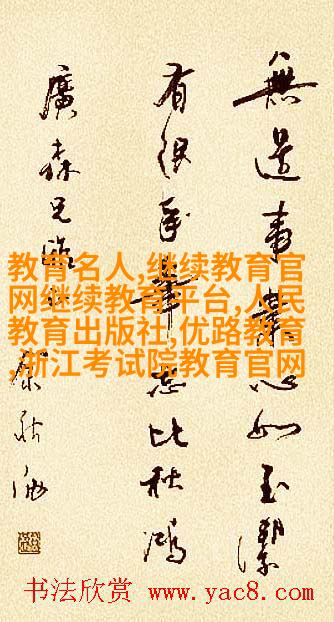 無邊事業心如玉潔
有限年華志比秋鴻
廣森兄
教育名人,继续教育官
网继续教育平台,人民
教育出版社,优路教育
,浙江考试院教育官网
书法欣赏 www.yac8.com